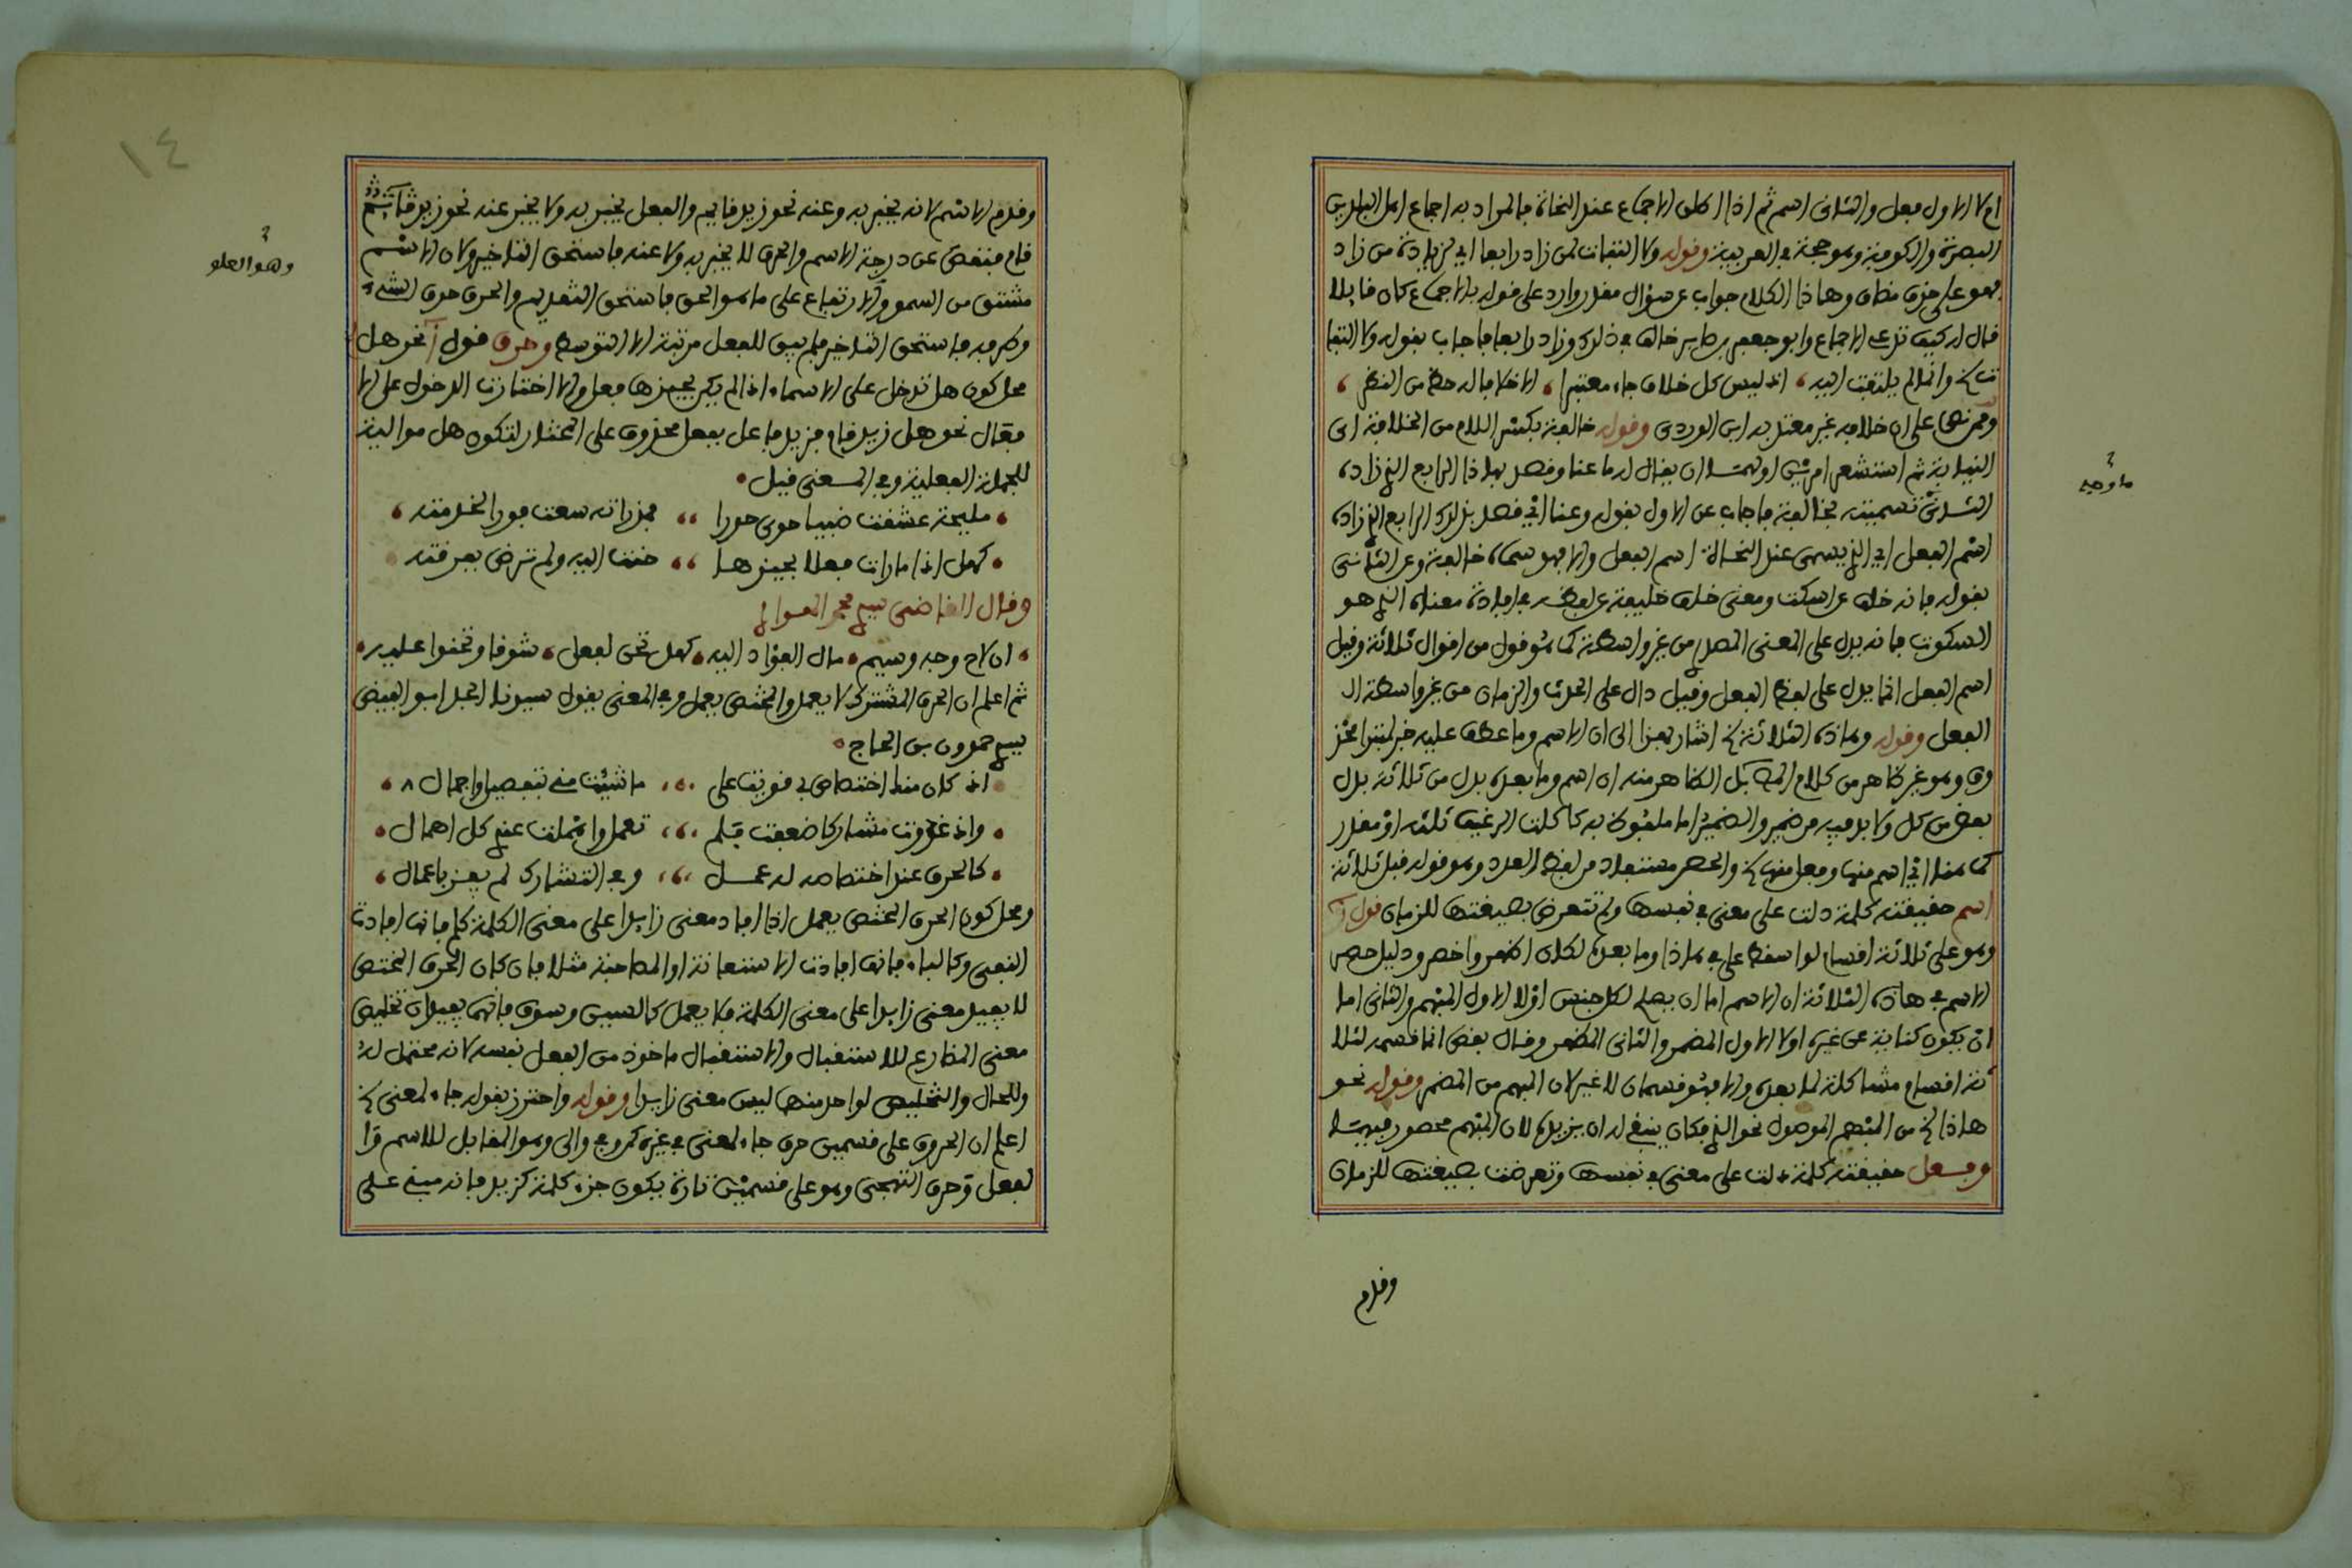 ام لا الاول فعل والثاني اسم ثم اذا اطلق الاجماع عند النحاة فالمراد به اجماع اهل البلدين
البصرة والكوفة وهو حجة في العربية وقوله ولا التفات لمن زاد رابعا اي لزيادة من زاد
فهو على حذف مضاف وهاذا الكلام جواب عن سؤال مقدر وارد على قوله بالاجماع كان قايلا
قال له كيف تدعي الاجماع وابو جعفر بن صابر خالف في ذلك وزاد رابعا فاجاب بقوله ولا التفا
ت الخ وانما لم يلتفت اليه، اذ ليس كل خلاف جاء معتبرا، الا خلافا له حظ من النظر،
وممن نص على ان خلافه غير معتد به ابن الوردي وقوله خالفة بكسر اللام من الخلافة اي
النيابة ثم استشعر امرين اولهما ان يقال له ما عنا وقصد بهاذا الرابع الذي زاده
الثاني تسميته بخالفة فاجاب عن الاول بقوله وعنا اي قصد بذلك الرابع الذي زاده
اسم الفعل اي الذي يسمى عند النحاة اسم الفعل والا فهو سماه خالفة وعن الثاني
بقوله فانه خلف عن اسكت ومعنى خلف خليفة عن لفظه في افادة معناه الذي هو
السكوت فانه يدل على المعنى المصدري من غير واسطة كما هو قول من اقوال ثلاثة وقيل
اسم الفعل انما يدل على لفظ الفعل وقيل دال على الحدث والزمان من غير واسطة الـ
الفعل وقوله وهاذه الثلاثة الخ اشار بهذا الى ان الاسم وما عطف عليه خبر لمبتدا محذ
وف وهو غير ظاهر من كلام المص بل الظاهر منه ان اسم وما بعده بدل من ثلاثة بدل
بعض من كل ولا بد فيه من ضمير والضمير اما ملفوظ به كاكلت الرغيف ثلثه او مقدر
كما هنا اي اسم منها وفعل منها الخ والحصر مستفاد من لفظ العدد وهو قوله قبل ثلاثة
اسم حقيقته كلمة دلت على معنى في نفسها ولم تتعرض بصيغتها للزمان قوله
وهو على ثلاثة اقسام لو اسقط على في هاذا وما بعده لكان اظهر واخصر ودليل حصر
الاسم في هاذه الثلاثة ان الاسم اما ان يصلح لكل جنس او لا الاول المبهم والثاني اما
ان يكون كناية عن غيره او لا الاول المضمر والثاني المظهر وقال بعض انما قسمه لثلا
ثة اقسام مشاكلة لما بعده والا فهو قسمان لا غير لان المبهم من المضمر وقوله نحو
هاذا الخ من المبهم الموصول نحو الذي فكان ينبغي له ان يزيده لان المبهم محصور فيهما
وفعل حقيقته كلمة دلت على معنى في نفسها وتعرضت بصيغتها للزمان
ما وجه
وقدم
وقدم الاسم لانه يخبر به وعنه نحو زيد قايم والفعل يخبر به ولا يخبر عنه نحو زيد قا
قام فنقص عن درجة الاسم والحرف لا يخبر به ولا عنه فاستحق التاخير ولان الاسم
مشتق من السمو والارتفاع على ما هو الحق فاستحق التقديم والحرف حرف الشيء
وطرفه فاستحق التاخير فلم يبق للفعل مرتبة الا التوسط وحرف قوله نحو هل
محل كون هل تدخل على الاسماء اذا لم يكن بحيزها فعل والا اختارت الدخول على الا
فقال نحو هل زيد قام فزيد فاعل بفعل محذوف على المختار لتكون هل موالية
للجملة الفعلية وفي المعنى قيل
مليحة عشقت ضبيا حوى حورا ،، فمذ راته سعت فورا لخدمته
كهل اذا ما رات فعلا بحيزها ،، حنت اليه ولم ترض بفرقته
وقال القاضي سيدي محمد العوالي
ان لاح وجه وسيم، مال الفؤاد اليه، كهل تحن لفعل، شوقا وتحنوا عليه
ثم اعلم ان الحرف المشترك لا يعمل والمختص يعمل وفي المعنى يقول سيدنا الجد ابو الفيض
سيدي حمدون بن الحاج
اذ كان منا اختصاص بي قويت على ،، ما شئت مني تفصيلا واجمالا
واذ غدوت مشاركا ضعفت فلم ،، تعمل واهملت عني كل اهمال
كالحرف عند اختصاصه له عمل ،، وفي التشارك لم يفز باعمال
ومحل كون الحرف المختص يعمل اذا افاد معنى زايدا على معنى الكلمة كلم فانها افادت
النفي وكالباء فانها افادت الاستعانة او المصاحبة مثلا فان كان الحرف المختص
لا يفيد معنى زايدا على معنى الكلمة فلا يعمل كالسين وسوف فانهما يفيدان تخليص
معنى المضارع للاستقبال والاستقبال ماخوذ من الفعل نفسه لانه محتمل له
وللحال والتخليص لواحد منهما ليس معنى زايدا وقوله واحترز بقوله جاء لمعنى الخ
اعلم ان الحروف على قسمين حرف جاء لمعنى في غيره كمن وفي والى وهو المقابل للاسم وا
لفعل وحرف التهجي وهو على قسمين تارة يكون جزء كلمة كزيد فانه مبني على
وهو العلو
١٤